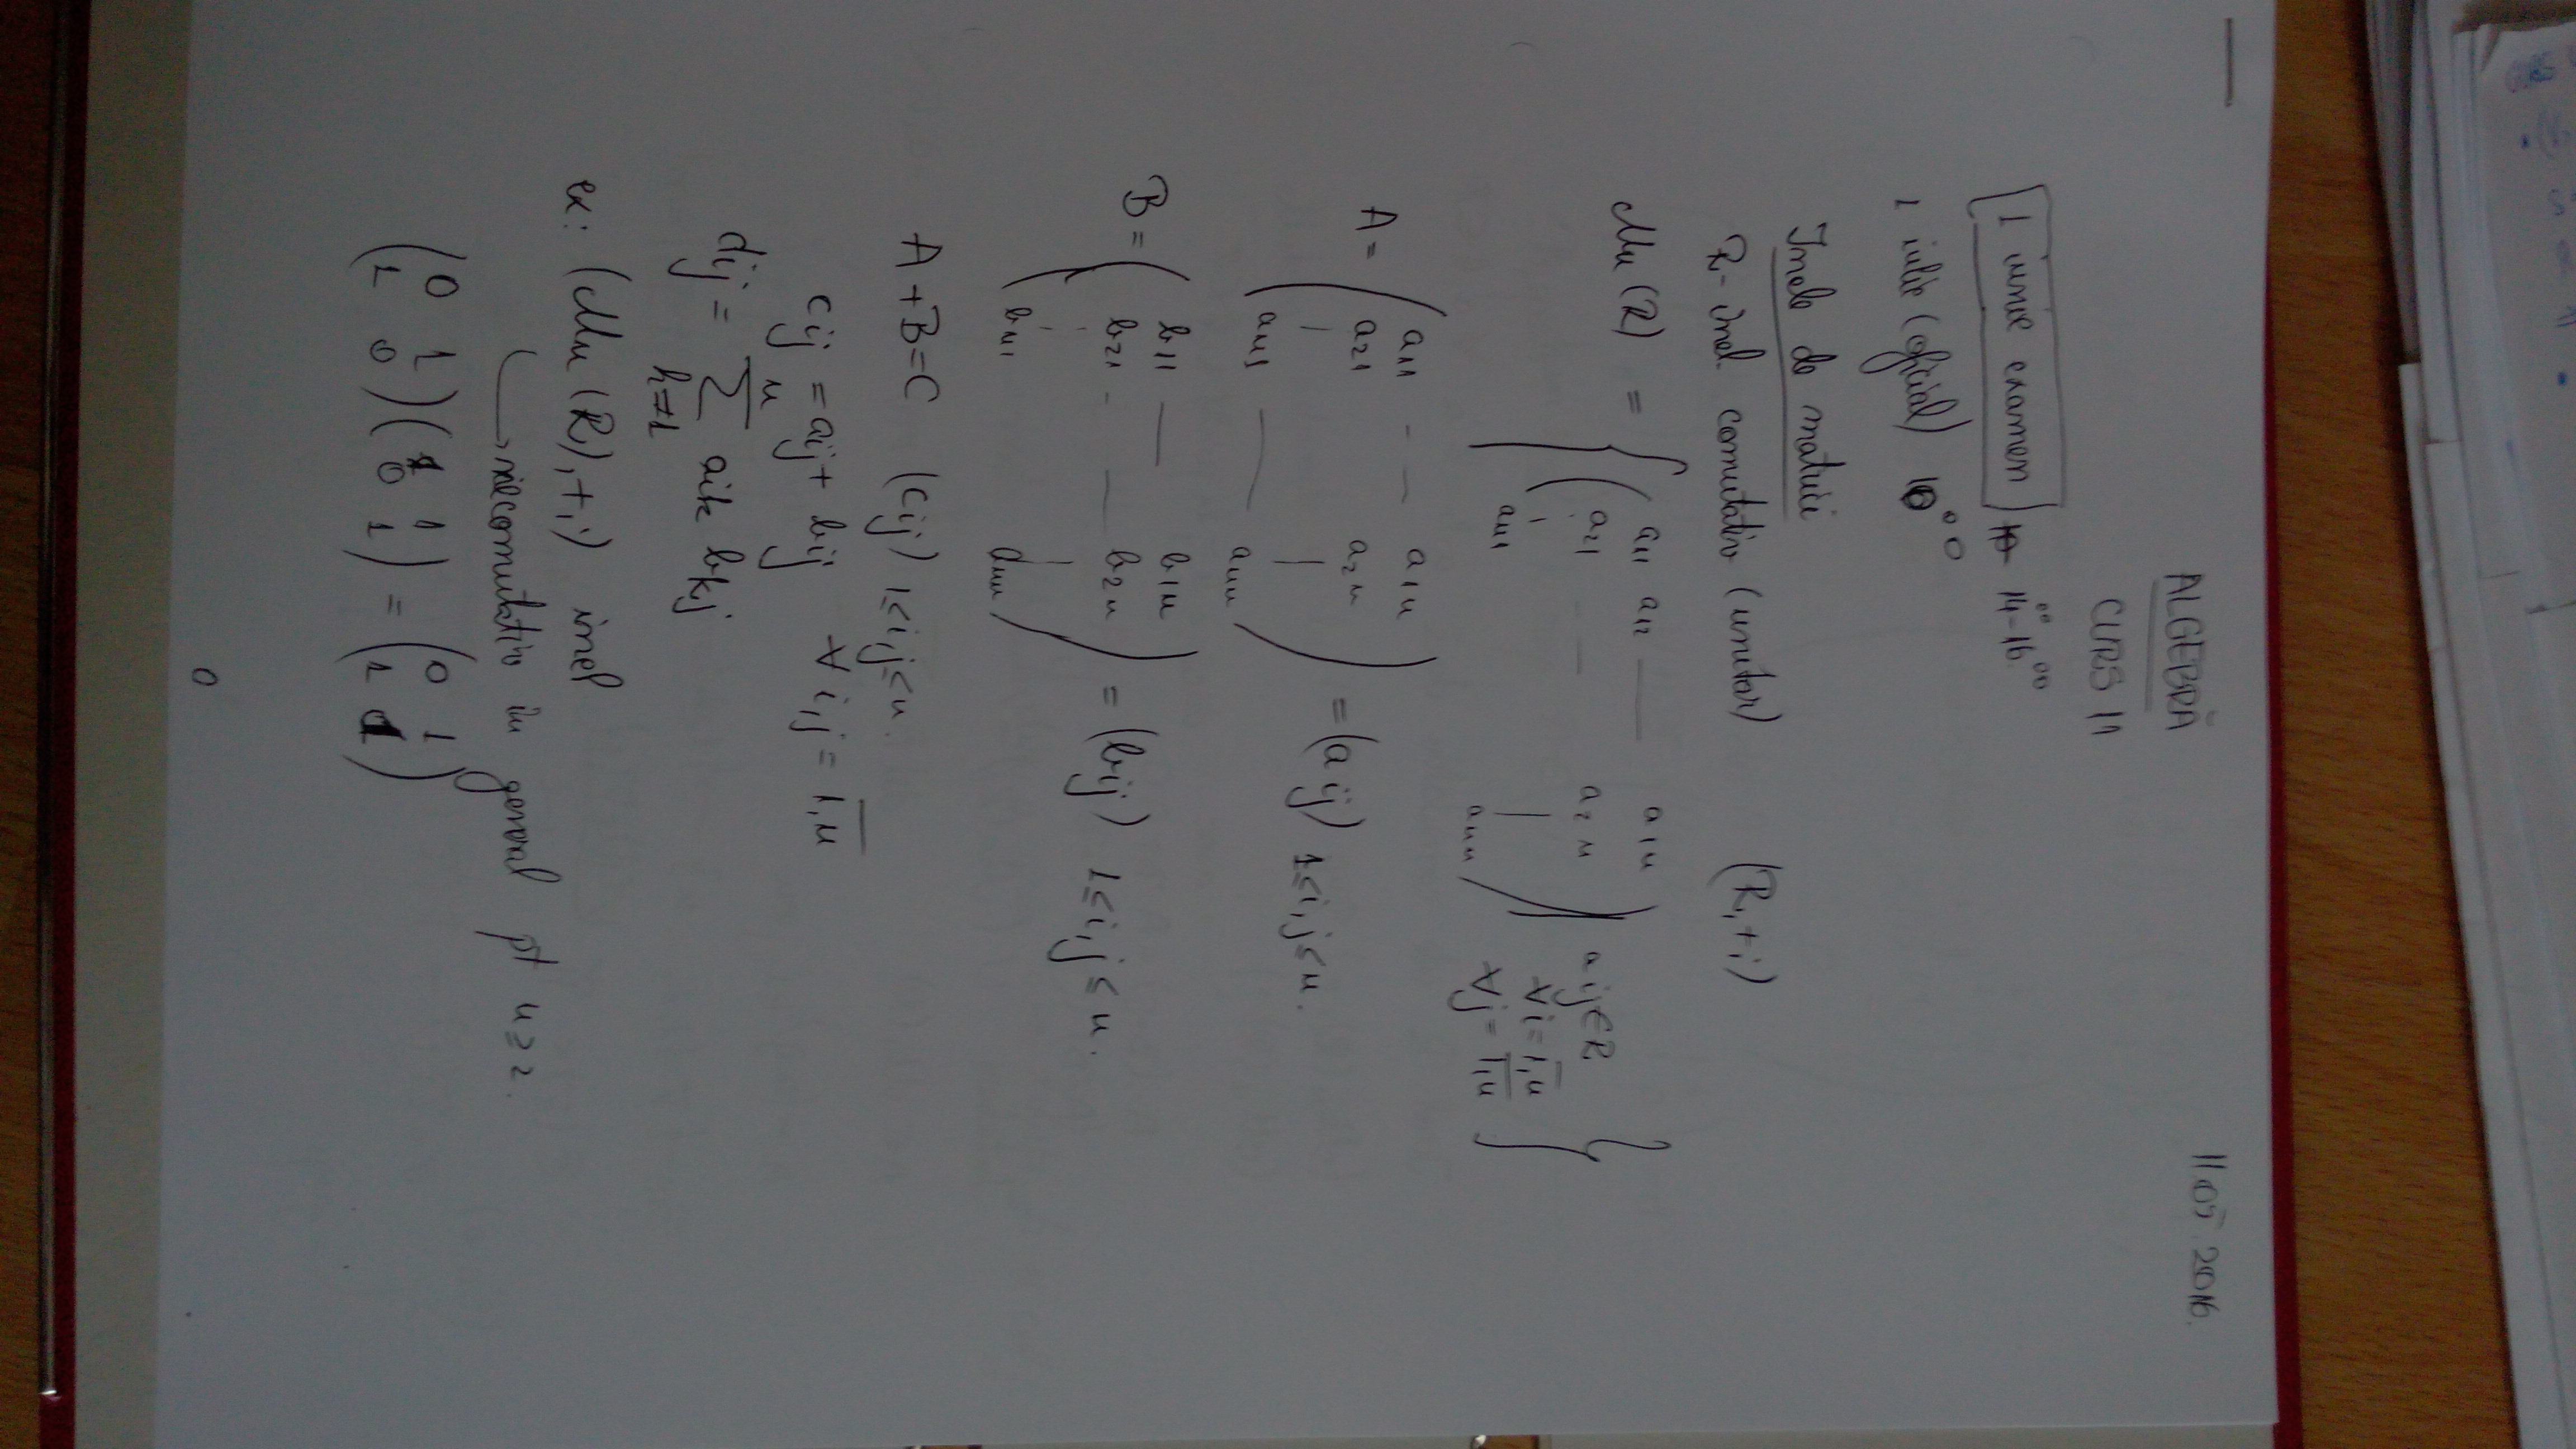 ALGEBRĂ 11 05 2016.
CURS 11
1 iunie examen 14⁰⁰-16⁰⁰
1 iulie (oficial) 10⁰⁰
Inele de matrici
R - inel comutativ (unitar) (R,+,·)
Mn (R) = { ( a11 a12 — a1n
a21 - - a2n
an1 ann ) aij∈R
∀i=1,n
∀j=1,n }
A = ( a11 - - a1n
a21 a2n
an1 — ann ) = (aij) 1≤i,j≤n.
B = ( b11 — b1n
b21 - — b2n
bn1 dnn ) = (bij) 1≤i,j≤n.
A+B=C (cij) 1≤i,j≤n.
cij = aij + bij ∀ i,j = 1,n
dij = n∑k=1 aik bkj
ex: (Mn (R),+,·) inel
→ necomutativ în general pt n≥2.
( 0 1 ) ( 1 1 ) = ( 0 1 )
( 1 0 ) ( 0 1 ) ( 1 1 )
0